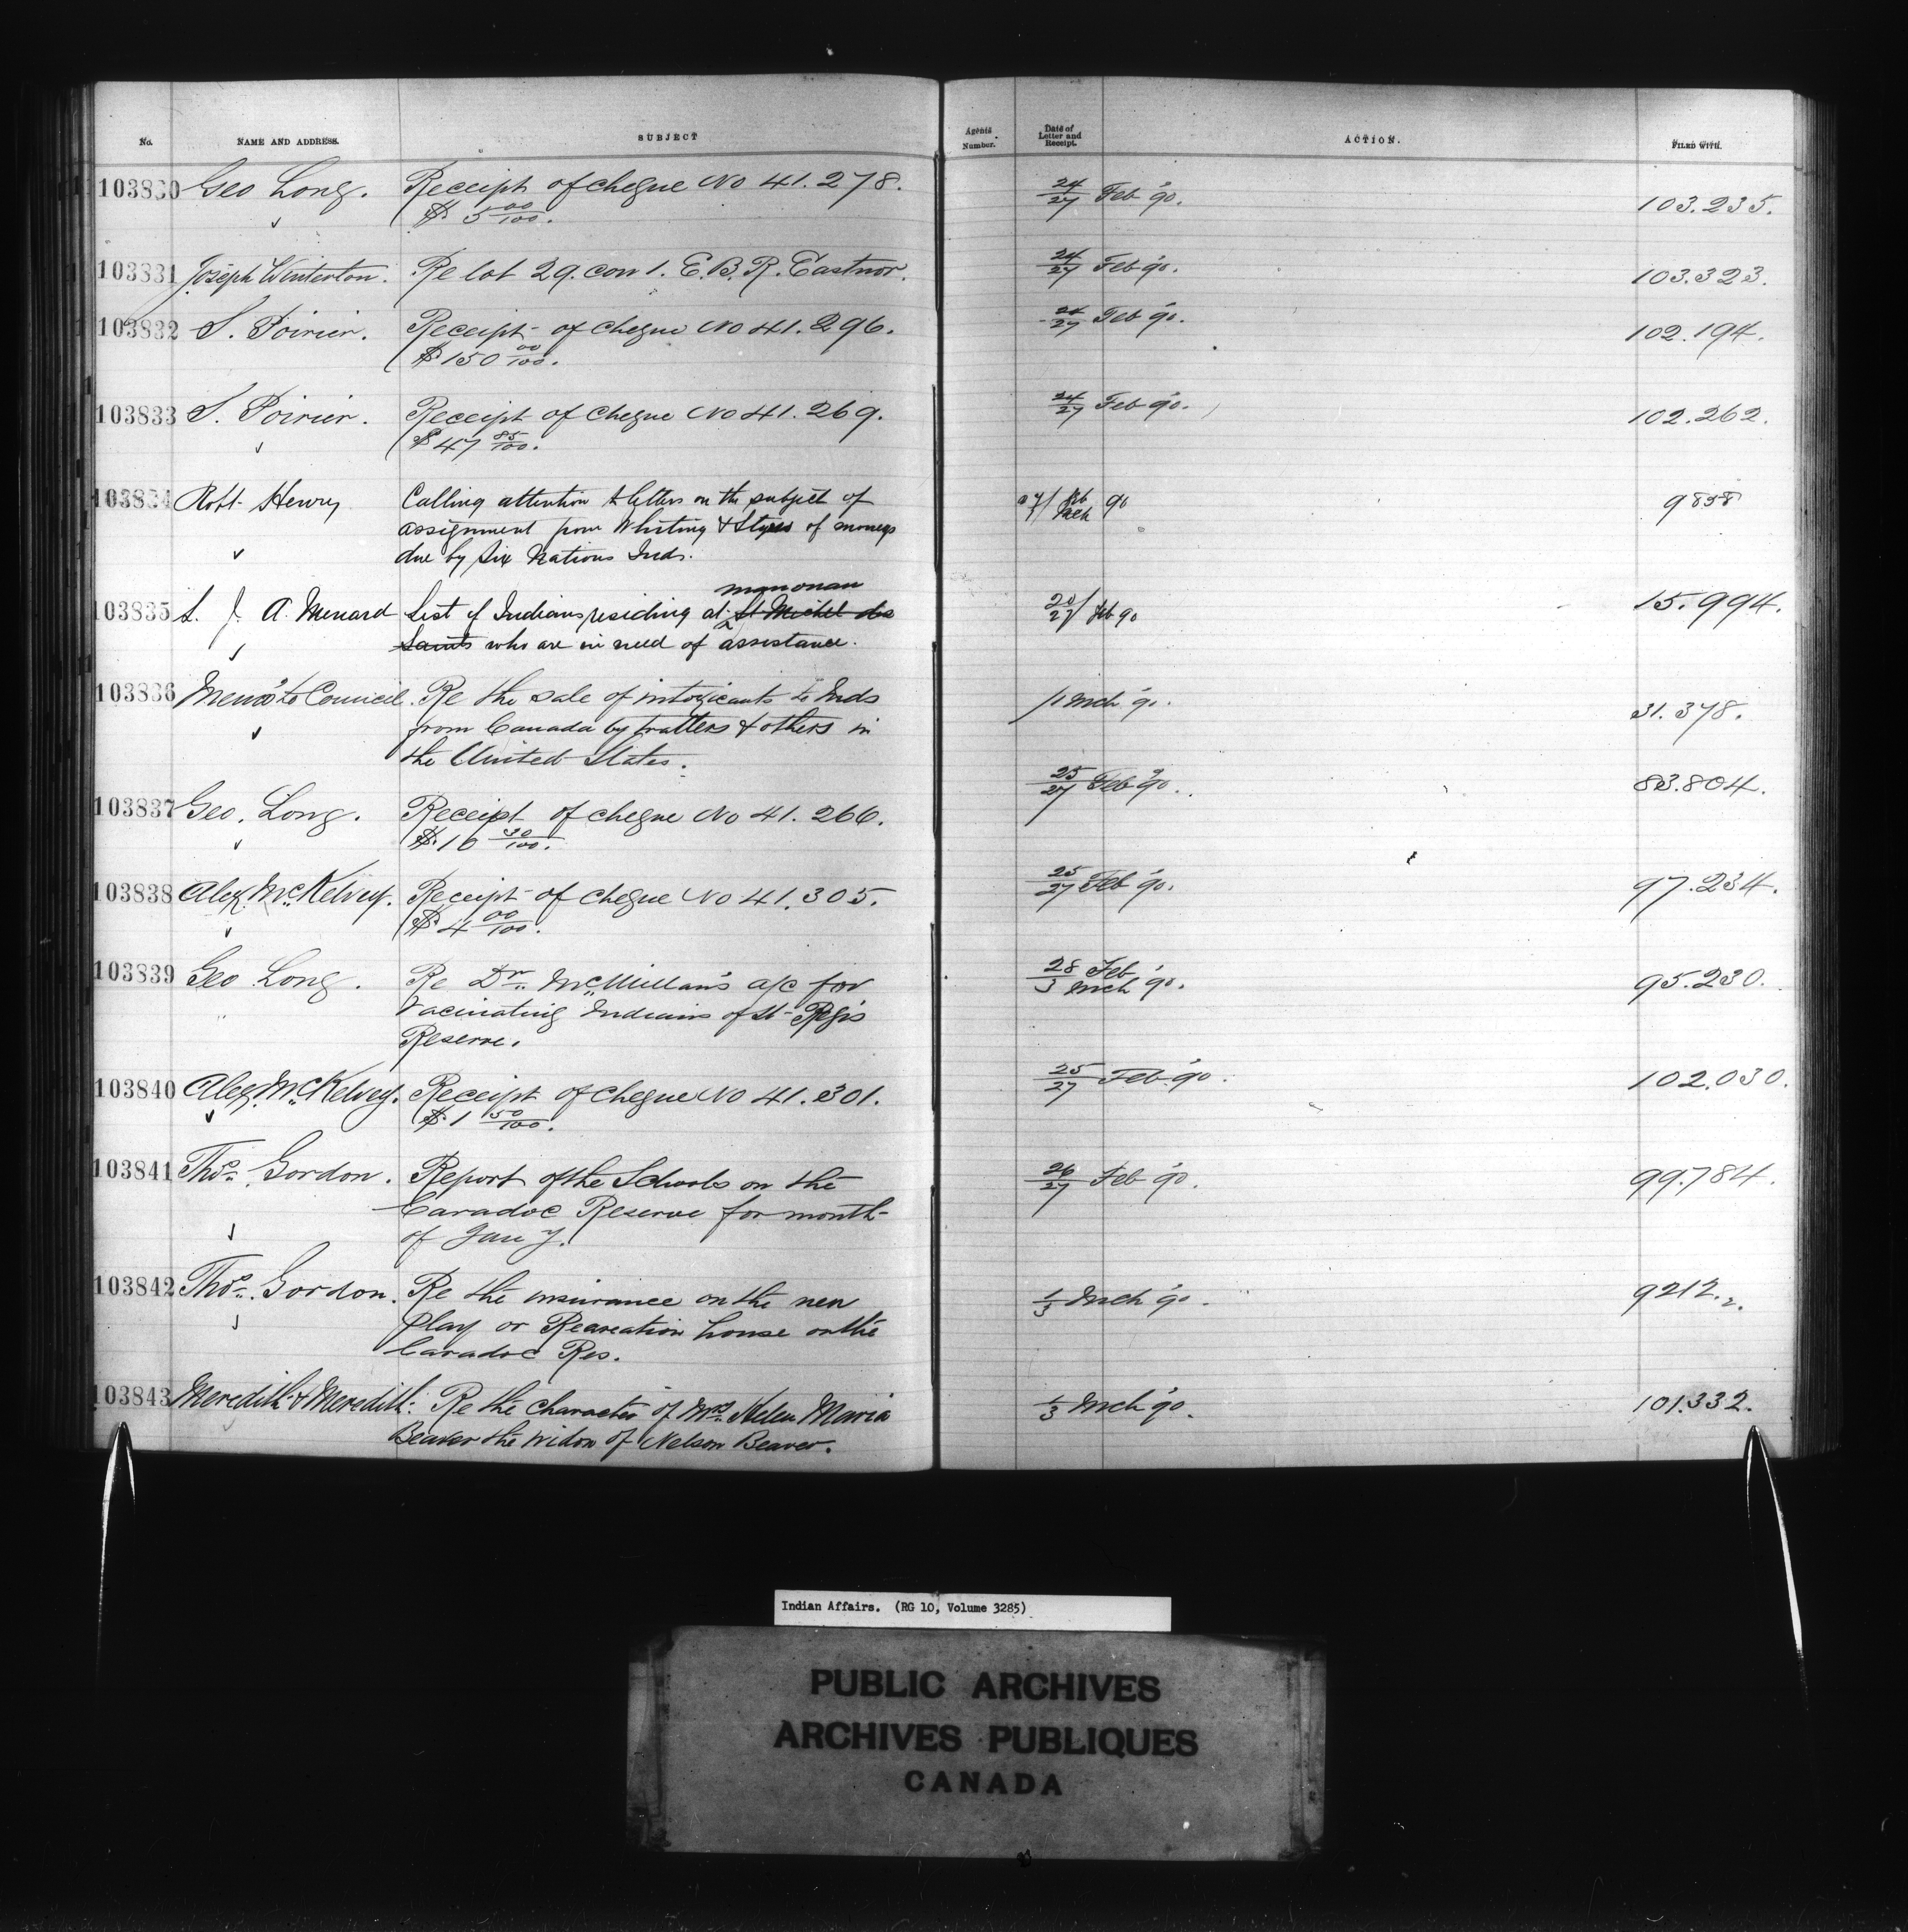 No. NAME AND ADDRESS. SUBJECT Agents Number. Date of Letter and Receipt. ACTION. FILED WITH.
103830 Geo Long. Receipt of cheque No 41.278. 24/27 Feb '90. 103.235.
$5 00/100.
103831 Joseph Winterton. Re lot 29. con 1. E.B.R. Eastnor. 24/27 Feb '90. 103.323.
103832 S. Poirier. Receipt of cheque No 41.296. 24/27 Feb '90. 102.194.
$150 00/100.
103833 S. Poirier. Receipt of cheque No 41.269. 24/27 Feb '90. 102.262.
$47 85/100.
103834 Robt Henry Calling attention to letters on the subject of 27/1 Feb Mch 90 9858
assignment from Whiting & Styres of moneys
due by Six Nations Inds.
manouan
103835 L. J. A. Menard List of Indians residing at St Michel des 20/27 Feb 90 15.994.
Saints who are in need of assistance.
103836 Memo to Council. Re the sale of intoxicants to Inds /1 Mch '90. 31.378.
from Canada by tratters & others in
the United States.
103837 Geo. Long. Receipt of cheque No 41.266. 25/27 Feb '90. 83.804.
$10 30/100.
103838 Alex. McKelvey. Receipt of cheque No 41.305. 25/27 Feb '90. 97.234.
$4 00/100.
103839 Geo Long. Re Dr. McMillan's a/c for 28/3 Feb Mch '90. 95.230.
vacinating Indians of St Regis
Reserve.
103840 Alex. McKelvey. Receipt of cheque No 41.301. 25/27 Feb '90. 102.030.
$1 50/100.
103841 Thos. Gordon. Report of the Schools on the 26/27 Feb '90. 99.784.
Caradoc Reserve for month
of Jany.
103842 Thos. Gordon. Re the insurance on the new 1/3 Mch '90. 9212.2.
play or Recreation house on the
Caradoc Res.
103843 Meredith & Meredith. Re the character of Mrs. Helen Maria 1/3 Mch '90. 101.332.
Beaver the widow of Nelson Beaver.
Indian Affairs. (RG 10, Volume 3285)
PUBLIC ARCHIVES
ARCHIVES PUBLIQUES
CANADA